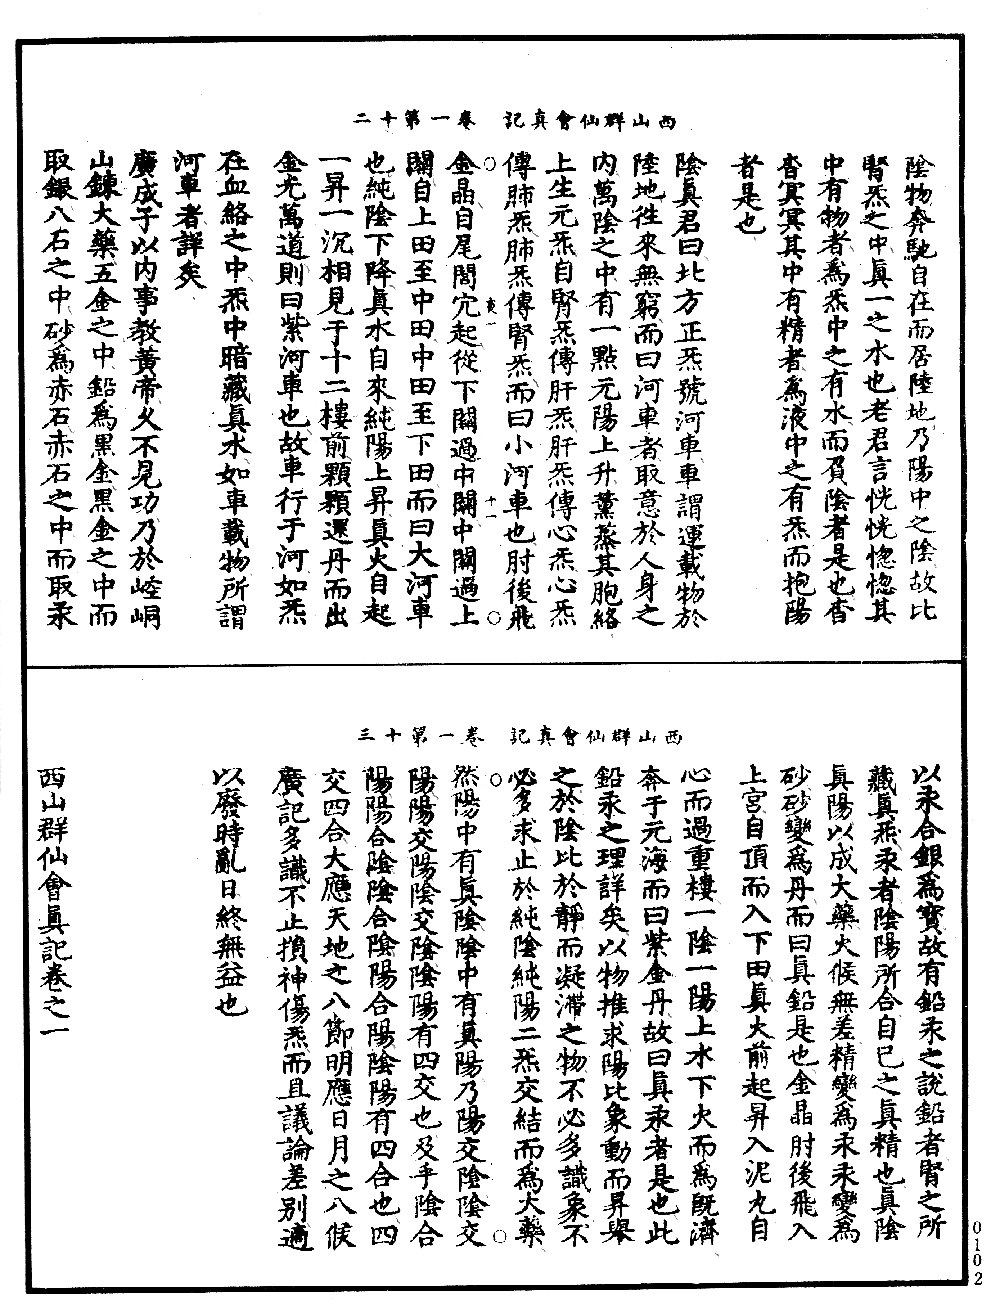 西山群仙會真記　卷一第十二
陰物奔馳自在而居陸地乃陽中之陰故比
腎炁之中真一之水也老君言恍恍惚惚其
中有物者為炁中之有水而負陰者是也杳
杳冥冥其中有精者為液中之有炁而抱陽
者是也
陰真君曰北方正炁號河車車謂運載物於
陸地徃來無窮而曰河車者取意於人身之
內萬陰之中有一點元陽上升薰蒸其胞絡
上生元炁自腎炁傳肝炁肝炁傳心炁心炁
傳肺炁肺炁傳腎炁而曰小河車也肘後飛
金晶自尾閭穴起從下關過中關中關過上
關自上田至中田中田至下田而曰大河車
也純陰下降真水自來純陽上昇真火自起
一昇一沉相見于十二樓前顆顆還丹而出
金光萬道則曰紫河車也故車行于河如炁
在血絡之中炁中暗藏真水如車載物所謂
河車者詳矣
廣成子以內事教黃帝乆不見功乃於崆峒
山鍊大藥五金之中鉛為黑金黑金之中而
取銀八石之中砂為赤石赤石之中而取汞
西山群仙會真記　卷一第十三
以汞合銀為寶故有鉛汞之說鉛者腎之所
藏真炁汞者陰陽所合自己之真精也真陰
真陽以成大藥火候無差精變為汞汞變為
砂砂變為丹而曰真鉛是也金晶肘後飛入
上宮自頂而入下田真火前起昇入泥丸自
心而過重樓一陰一陽上水下火而為既濟
奔于元海而曰紫金丹故曰真汞者是也此
鉛汞之理詳矣以物推求陽比象動而昇舉
之於陰比於靜而凝滯之物不必多識象不
必多求止於純陰純陽二炁交結而為大藥
然陽中有真陰陰中有真陽乃陽交陰陰交
陽陽交陽陰交陰陰陽有四交也及乎陰合
陽陽合陰陰合陰陽合陽陰陽有四合也四
交四合大應天地之八節明應日月之八候
廣記多識不止損神傷炁而且議論差別適
以廢時亂日終無益也
西山群仙會真記卷之一
0102